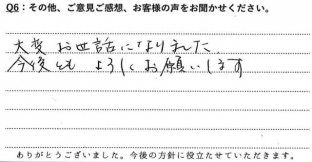 Q6：その他、ご意見ご感想、お客様の声をお聞かせください。
大変お世話になりました
今後とも よろしくお願いします
ありがとうございました。今後の方針に役立たせていただきます。